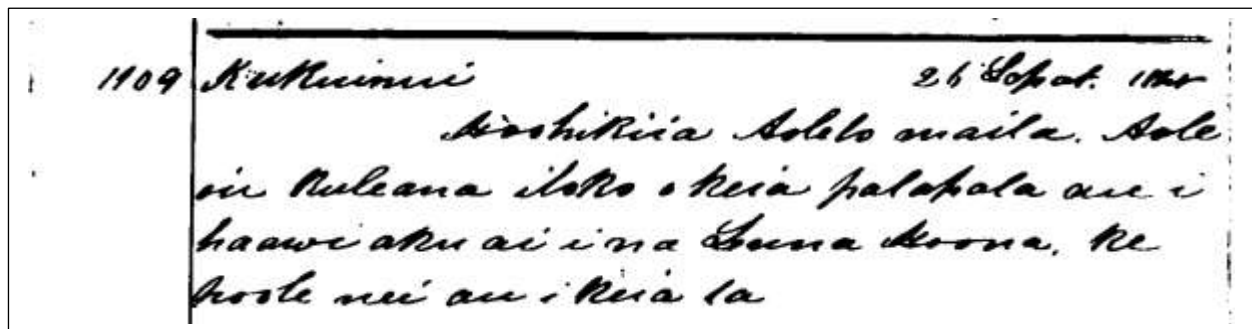 1109 Kukuinui 26 Sepat. 1848
Hoohikiia Aoleo maila. Aole
o'u kuleana iloko o keia palapala au i
haawi aku ai i na Luna Hoona. Ke
hoole nei au i keia la